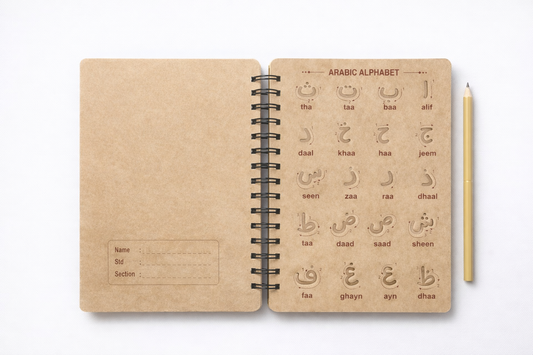 Name :
Std :
Section :
ARABIC ALPHABET
ا ب ت ث
alif baa taa tha
ج ح خ د
jeem haa khaa daal
ذ ر ز س
dhaal raa zaa seen
ش ص ض ط
sheen saad daad taa
ظ ع غ ف
dhaa ayn ghayn faa